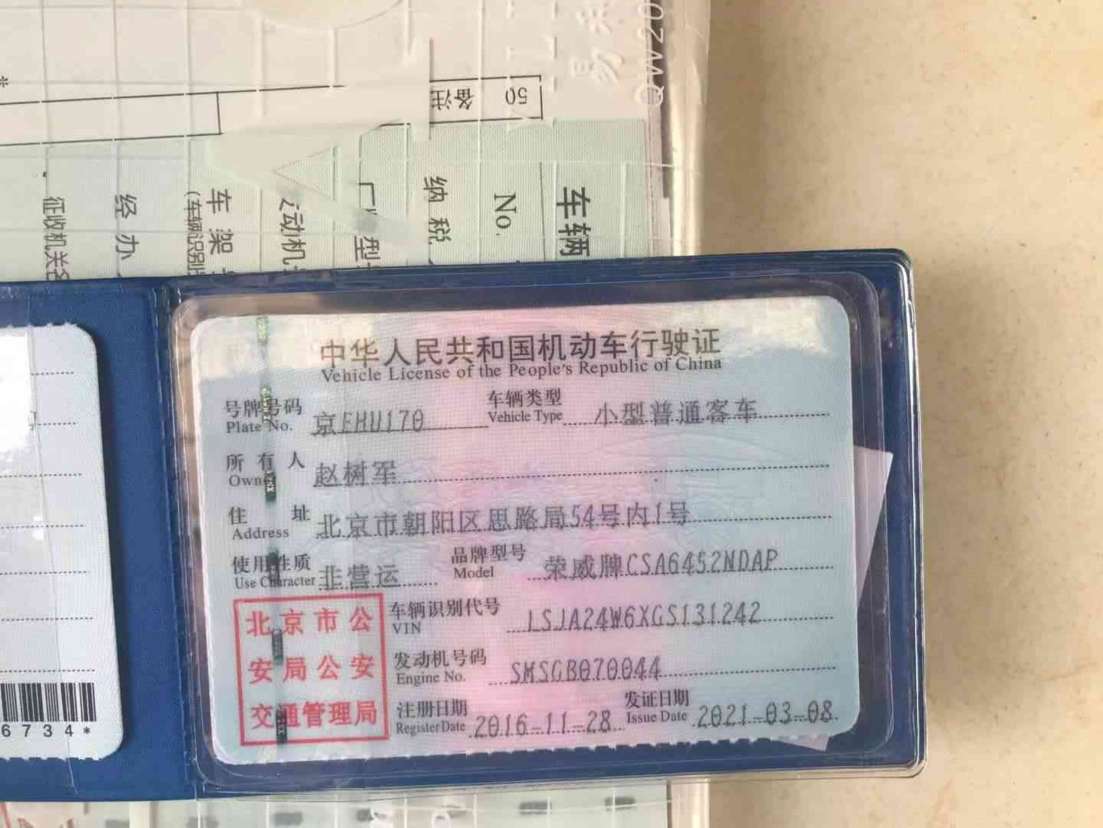 50 备注
QW20
车辆
No.
纳税
型
发动机
车架
(车辆识别
经办
征收机关名
中华人民共和国机动车行驶证
Vehicle License of the People's Republic of China
号牌号码 京EHU170 车辆类型 小型普通客车
Plate No. Vehicle Type
所有人 赵树军
Owner
住址 北京市朝阳区思路局54号内1号
Address
使用性质 非营运 品牌型号 荣威牌CSA6452NDAP
Use Character Model
北京市公
安局公安
交通管理局
车辆识别代号 LSJA24W6XGS131242
VIN
发动机号码 SMSGB070044
Engine No.
注册日期 2016-11-28 发证日期 2021-03-08
Register Date Issue Date
6734*